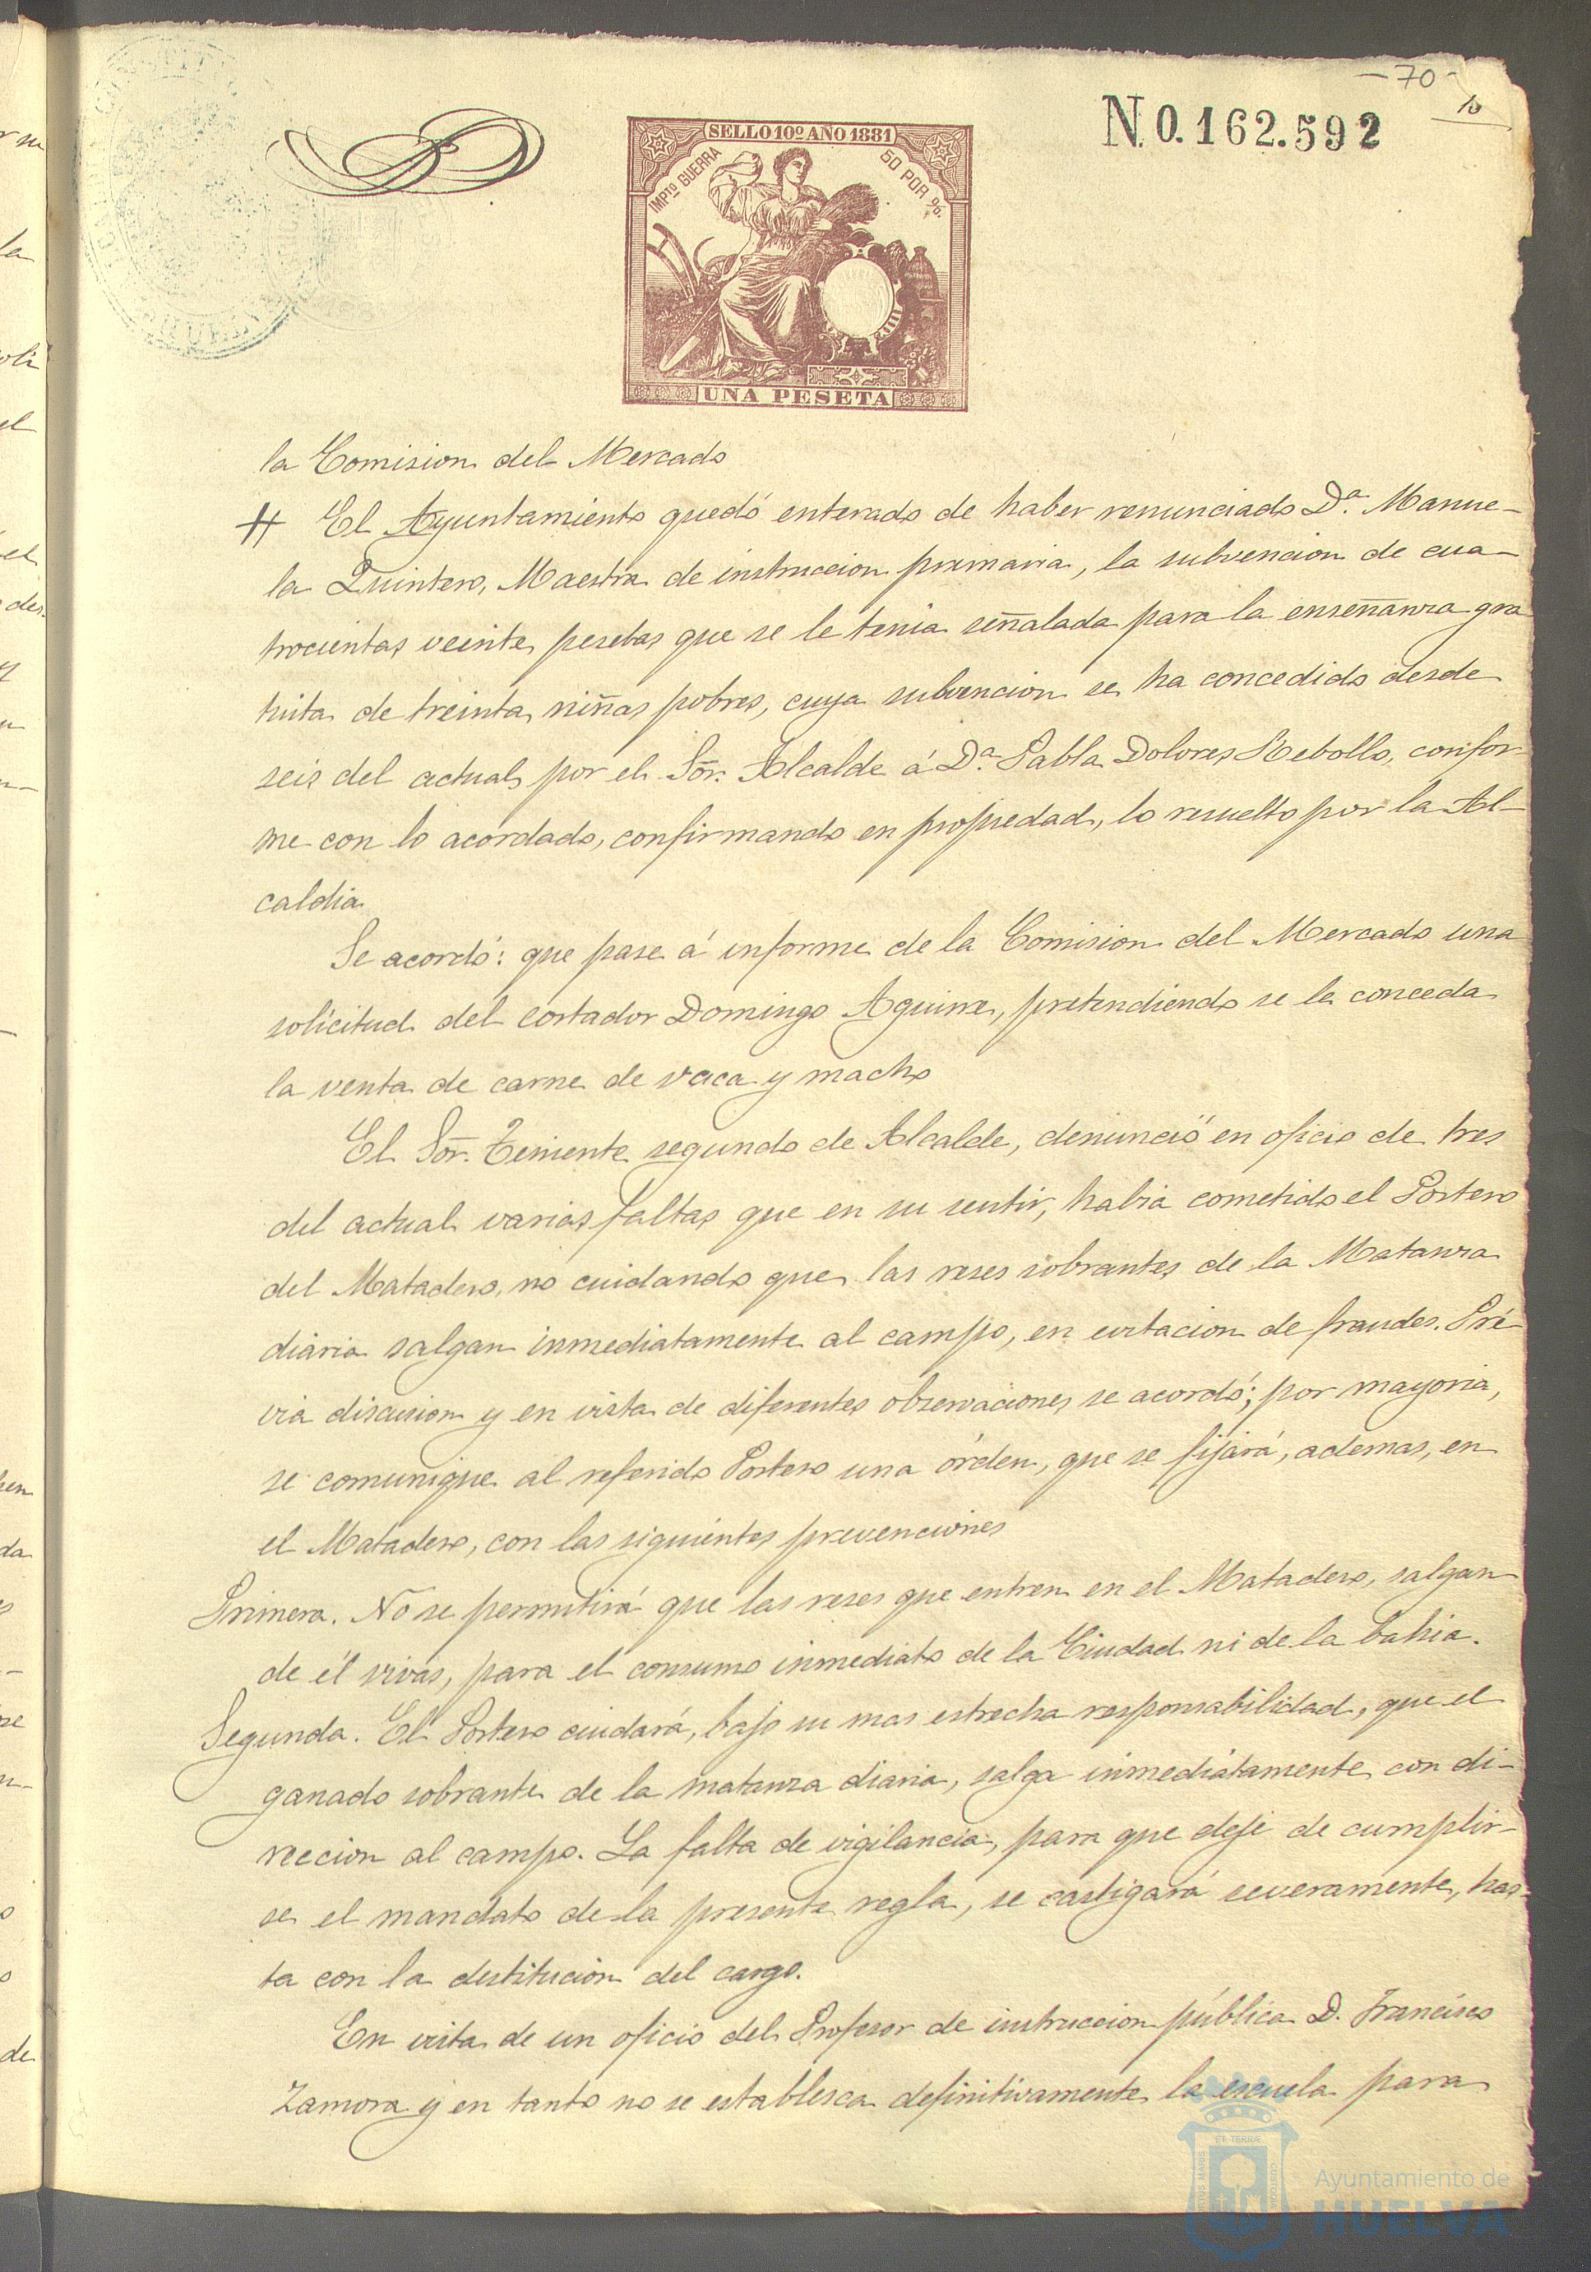 - 70 -
10
N.0.162.592
SELLO 10º AÑO 1881
IMPTO GUERRA
50 POR %.
UNA PESETA
la Comision del Mercado
# El Ayuntamiento quedó enterado de haber renunciado Dª. Manue-
la Quintero, Maestra de instruccion primaria, la subvencion de cua-
trocientas veinte pesetas que se le tenia señalada para la enseñanza gra
tuita de treinta niñas pobres, cuya subvencion se ha concedido desde
seis del actual por el Sor. Alcalde á Dª. Pabla Dolores Rebollo, confor-
me con lo acordado, confirmando en propiedad, lo resuelto por la Al-
caldia
Se acordó: que pase á informe de la Comision del Mercado una
solicitud del cortador Domingo Aguirre, pretendiendo se le conceda
la venta de carne de vaca y macho
El Sor. Teniente segundo de Alcalde, denunció en oficio de tres
del actual varias faltas que en su sentir, habia cometido el Portero
del Matadero, no cuidando que las reses sobrantes de la Matanza
diaria salgan inmediatamente al campo, en evitacion de fraudes. Pré-
via discusion y en vista de diferentes observaciones se acordó; por mayoria,
se comunique al referido Portero una órden, que se fijará, ademas, en
el Matadero, con las siguientes prevenciones
Primera. No se permitirá que las reses que entren en el Matadero, salgan
de él vivas, para el consumo inmediato de la Ciudad ni de la bahia.
Segunda. El Portero cuidará, bajo su mas estrecha responsabilidad, que el
ganado sobrante de la matanza diaria, salga inmediatamente con di-
reccion al campo. La falta de vigilancia, para que deje de cumplir-
se el mandato de la presente regla, se castigará severamente, has-
ta con la destitucion del cargo.
En vista de un oficio del Profesor de instruccion pública D. Francisco
Zamora y en tanto no se establesca definitivamente la escuela para
Ayuntamiento de
HUELVA